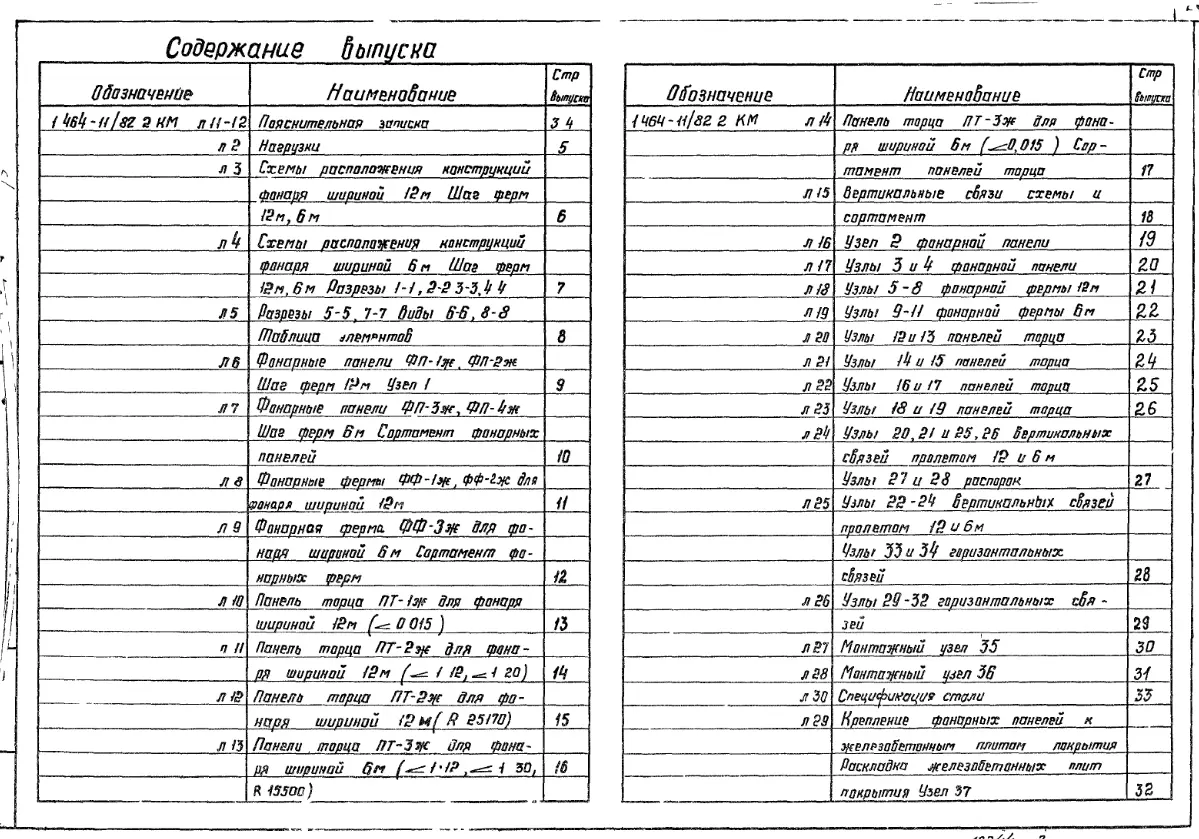 Содержание выпуска
Обозначение Наименование Стр выпуска
1 464-11/82 2 КМ л 11-12 Пояснительная записка 3 4
л 2 Нагрузки 5
л 3 Схемы расположения конструкций
фонаря шириной 12м Шаг ферм
12м, 6м 6
л 4 Схемы расположения конструкций
фонаря шириной 6м Шаг ферм
12м, 6м Разрезы 1-1, 2-2 3-3, 4 4 7
л 5 Разрезы 5-5, 7-7 Виды 6-6, 8-8
Таблица элементов 8
л 6 Фонарные панели ФП-1ж, ФП-2ж
Шаг ферм 12м Узел 1 9
л 7 Фонарные панели ФП-3ж, ФП-4ж
Шаг ферм 6м Сортамент фонарных
панелей 10
л 8 Фонарные фермы ФФ-1ж, ФФ-2ж для
фонаря шириной 12м 11
л 9 Фонарная ферма ФФ-3ж для фо-
наря шириной 6м Сортамент фо-
нарных ферм 12
л 10 Панель торца ПТ-1ж для фонаря
шириной 12м (∠ 0 015 ) 13
л 11 Панель торца ПТ-2ж для фона-
ря шириной 12м (∠ 1 12, ∠ 1 20) 14
л 12 Панель торца ПТ-2ж для фо-
наря шириной 12м ( R 25170) 15
л 13 Панели торца ПТ-3ж для фона-
ря шириной 6м (∠ 1·12, ∠ 1 30, 16
R 15500)
Обозначение Наименование Стр выпуска
1 464-11/82 2 КМ л 14 Панель торца ПТ-3ж для фона-
ря шириной 6м (∠0,015 ) Сор-
тамент панелей торца 17
л 15 Вертикальные связи схемы и
сортамент 18
л 16 Узел 2 фонарной панели 19
л 17 Узлы 3 и 4 фонарной панели 20
л 18 Узлы 5-8 фонарной фермы 12м 21
л 19 Узлы 9-11 фонарной фермы 6м 22
л 20 Узлы 12 и 13 панелей торца 23
л 21 Узлы 14 и 15 панелей торца 24
л 22 Узлы 16 и 17 панелей торца 25
л 23 Узлы 18 и 19 панелей торца 26
л 24 Узлы 20, 21 и 25, 26 вертикальных
связей пролетом 12 и 6м
Узлы 27 и 28 распорок 27
л 25 Узлы 22-24 вертикальных связей
пролетом 12 и 6м
Узлы 33 и 34 горизонтальных
связей 28
л 26 Узлы 29-32 горизонтальных свя-
зей 29
л 27 Монтажный узел 35 30
л 28 Монтажный узел 36 31
л 30 Спецификация стали 33
л 29 Крепление фонарных панелей к
железобетонным плитам покрытия
Раскладка железобетонных плит
покрытия Узел 37 32